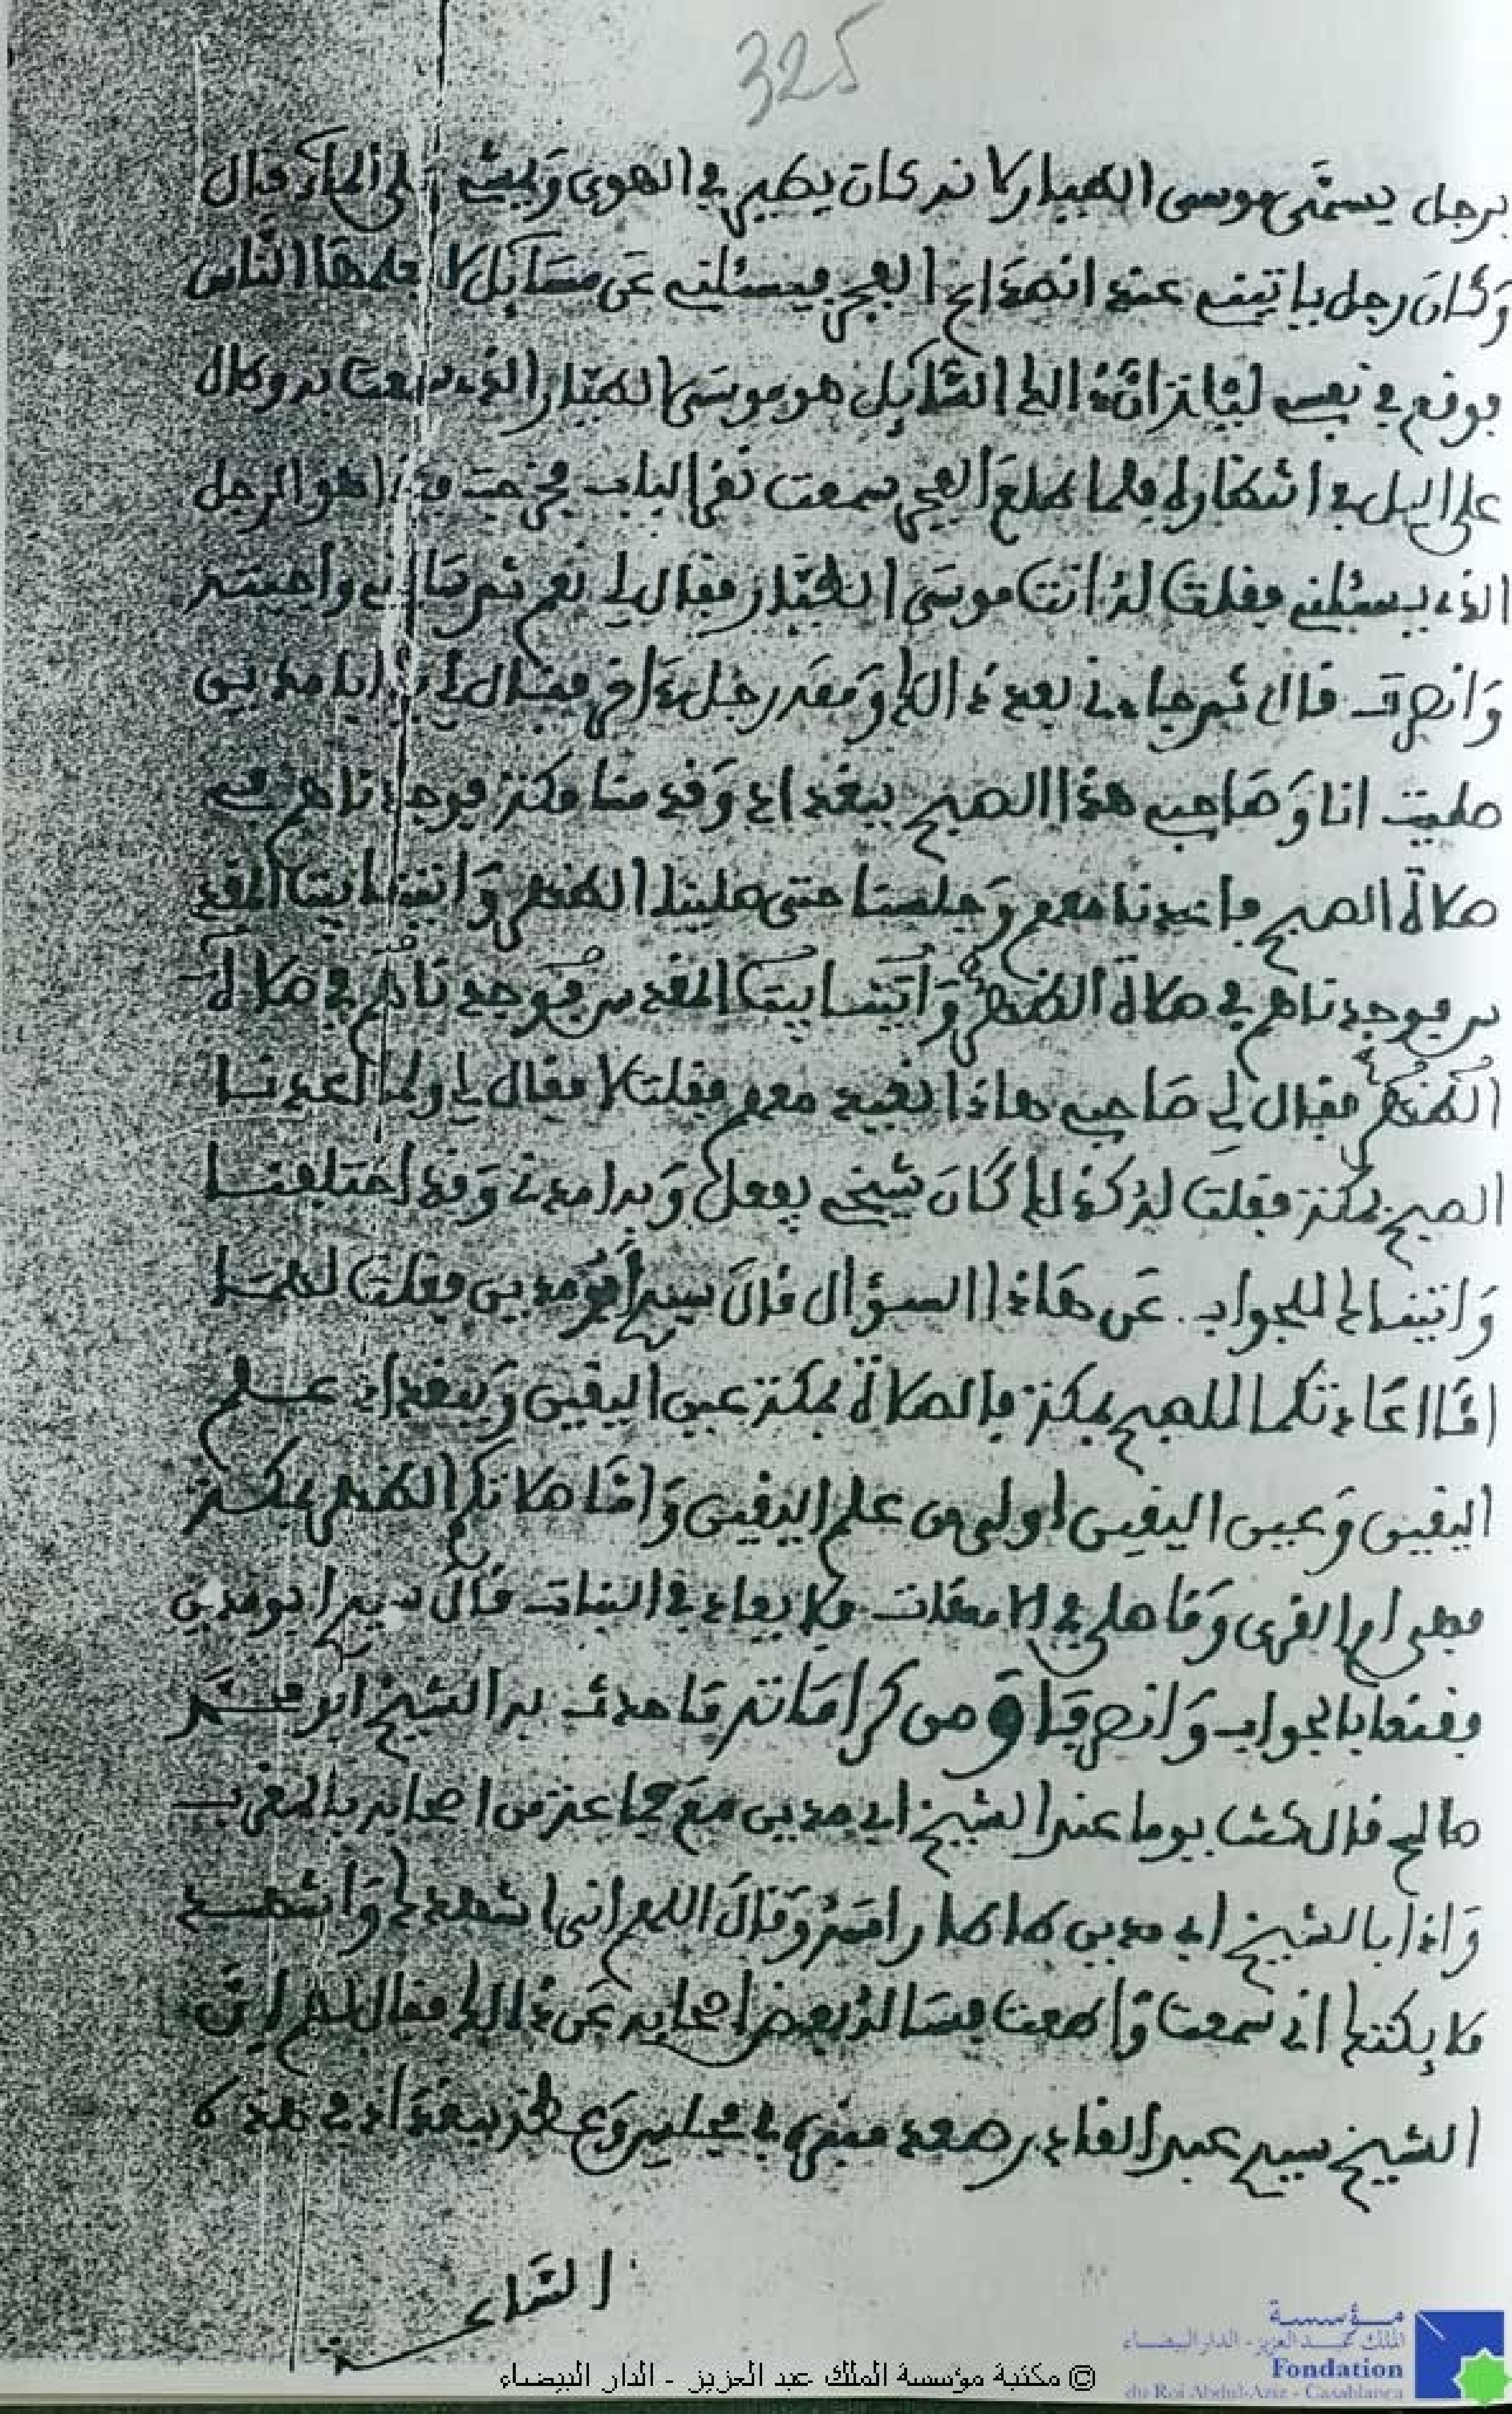 325
برجل يسمّى موسى الطيار كانه كان يطير في الهوى ويمشي على الماء قال
وكان رجل ياتيني عند انصداع الفجر فيسئلني عن مسائل لا يعلمها الناس
فوقع في نفسي ليلة انّ ذالك السّائل هو موسى الطيّار الذي سمعت به وطال
علي اليل في انتظاره فلما طلع الفجر سمعت نقر الباب فخرجت فاذا هو الرجل
الذي يسئلني فقلت له انت موسى الطيّار فقال لي نعم ثم سالني واجبته
وانصرف قال ثم جاءني بعد ذالك ومعه رجل ءاخر فقال لي يا ابا مدين
صليت انا وصاحبي هذا الصبح ببغداد وقدمنا مكة فوجدناهم في
صلاة الصبح فاعدنا معهم وجلسنا حتى صلينا الظهر واتينا بيت المقد
س فوجدناهم في صلاة الظهر واتينا بيت المقدس فوجدناهم في صلاة
الظهر فقال لي صاحبي هاذا نعيد معهم فقلت لا فقال لي ولم اعدنا
الصبح بمكة فقلت له كذلك كان شيخي يفعل وبه امرني وقد اختلفنا
واتيناك للجواب عن هاذا السؤال قال سيدي ابو مدين فقلت لهما
امّا اعادتكما للصبح بمكة فالصلاة بمكة عين اليقين وببغداد علم
اليقين وعين اليقين اولى من علم اليقين وامّا صلاتكم الظهر بمكة
فهي ام القرى وما صلي في الامهات فلا يعاد في البنات قال سيدي ابو مدين
فقنعا بالجواب وانصرفا ومن كراماته ما حدث به الشيخ ابو محمد
صالح قال كنت يوما عند الشيخ ابي مدين مع جماعة من اصحابه بالمغرب
واذا بالشيخ ابي مدين طاطا راسه وقال اللهم اني اشهدك واشهد
ملائكتك اني سمعت واطعت فساله بعض اصحابه عن ذالك فقال لهم ان
الشيخ سيدي عبد القادر صعد منبره في مجلس وعظه ببغداد في هذه
السّاعة
© مكتبة مؤسسة الملك عبد العزيز - الدار البيضاء
مؤسسة
الملك عبد العزيز - الدار البيضاء
Fondation
du Roi Abdul-Aziz - Casablanca